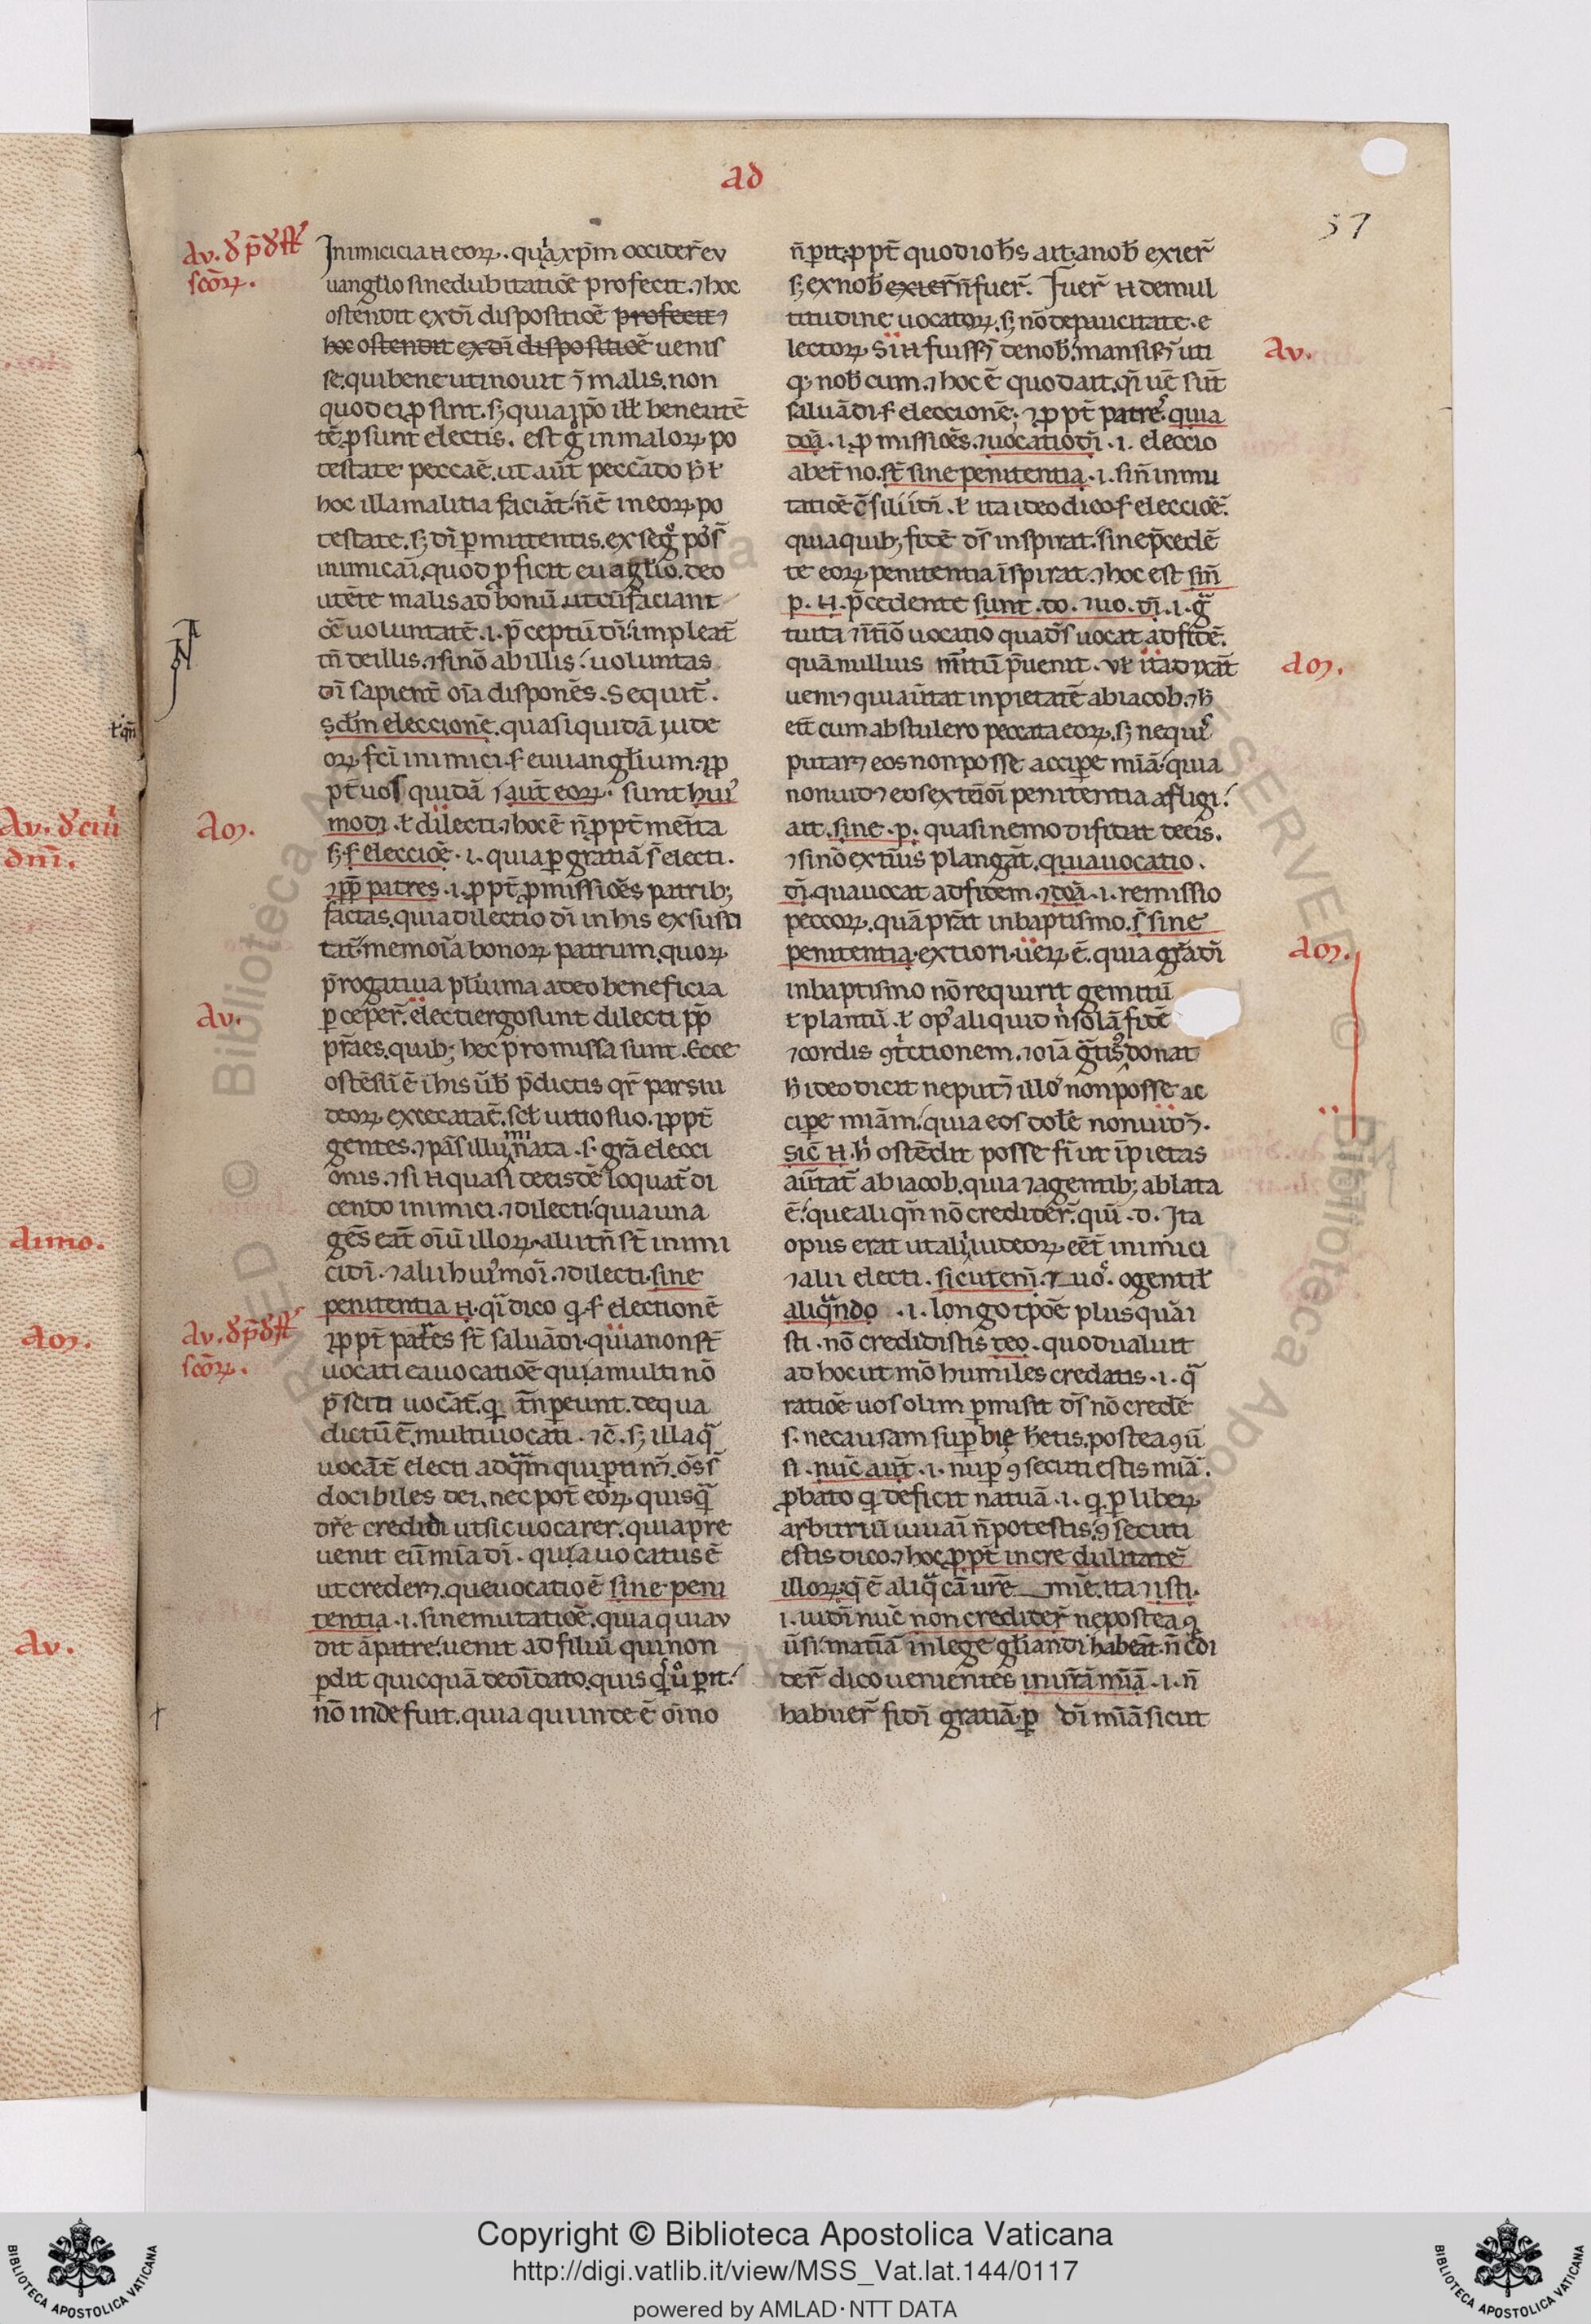 ad
57
Au. δ p̄δst̄
scōꝝ.
Inimicicia .n. eoꝝ. quia xp̄m occiderꝰ eu
uanglio sine dubitatiōe profecit. ⁊ hoc
ostendit ex dī dispositiōe profecit ⁊
hoc ostendit ex dī dispositiōe uenis
se. qui bene uti nouit ⁊ malis. non
quod ei ꝓsint. sꝫ quia ipō illꝭ bene utē
tē. ꝓsunt electis. est gͦ in maloꝝ po
testate peccāe. ut aūt peccādo hꝭ ł
hoc illa malitia faciāt. n̄ ē in eoꝝ po
testate. sꝫ dī ꝑmittentis.
inimicāi. quod ꝓficit euāglio. deo
utēte malis ad bonū. ut cū faciant
cē uoluntatē .i. p̄ceptū dī. impleat̄
tn̄ de illis. ⁊ si nō ab illis. uoluntas
dī sapient̄ oīa disponēs. Sequit̄.
scd̄m eleccionē. quasi quidā iude
oꝝ fc̄i inimici .s. euuanglium. ⁊ ꝓ
pt̄ uos quidā aūt eoꝝ. sunt huiꝰ
Aꝫ.
modi. ł dilecti. ⁊ hoc ē n̄ ꝓpt̄ merita
sꝫ .s. elecciōē .i. quia ꝑ gratiā s̄ electi.
⁊ ꝓp̄ patres .i. ꝓpt̄ ꝓmissiōēs patribꝫ
factas. quia dilectio dī in his exsusci
tat̄. memoīa bonoꝝ patrum. quoꝝ
p̄rogatiua plurima a deo beneficia
Au.
ꝑceper̄. electi ergo sunt dilecti ꝓp̄
pr̄aes. quibꝫ hec promissa sunt. Ecce
ostēsū ē i his ūb̄ p̄dictis qr̄ pars iu
deoꝝ excecata ē. scꝉ uitio suo. ⁊ ꝓpt̄
gentes. ⁊ pās illuminata .s. gr̄a elecci
onis. ⁊ si .n. quasi de eisdē loquat̄ di
cendo inimici. ⁊ dilecti. quia una
gēs eāt oīū illoꝝ. alii tn̄ st̄ inimi
ci dī. ⁊ alii huiꝰmōi. ⁊ dilecti. sine
Au. δp̄δst̄
scōꝝ.
penitentia .n. qi dico ꝙ .s. electionē
⁊ ꝓpt̄ patres st̄ saluādi. quia non st̄
uocati ea uocatiōē quia multi nō
p̄sciti uocāt̄. ꝙ tn̄ ꝑeunt. de qua
dictū ē. multi uocati. ⁊c̄. sꝫ illa q̄
uocāt̄ electi
docibiles dei. nec pot̄ eoꝝ quisq̄
dr̄e credidi ut sic uocarer. quia pre
uenit eū mīa dī. quia uocatus ē
ut crederꝫ. que uocatio ē sine peni
tentia .i. sine mutatiōē. quia qui au
dit ā patre. uenit ad filiū qui non
ꝑdit quicquā de oī dato. quis ꝑit.
nō inde fuit. quia qui inde ē oīno
n̄ ꝑit. ꝓpt̄ quod iohs̄ ait. a nob̄ exier̄
sꝫ ex nob̄ exier̄ n̄ fuer̄. Fuer̄ .n. de mul
titudine uocatoꝝ. sꝫ nō de paucitate. e
Au.
lectoꝝ. Si .n. fuissꝫ de nob̄. mansissꝫ uti
qꝫ nobcum. ⁊ hoc ē quod ait. qi uē sūt
saluādi .s. eleccionē. ⁊ ꝓpt̄ patres. quia
dōa .i. ꝓmissiōēs. ⁊ uocatio dī .i. eleccio
abet̄no. st̄ sine penitentia .i. sin̄ inmu
tatiōē c̄silii dī. ł ita ideo dico .s. elecciōē.
quia quibꝫ fidē ds̄ inspirat. sine p̄cedē
te eoꝝ penitentia īspirat. ⁊ hoc est sin̄
p. .n. p̄cedente sunt .do. ⁊ uo. dī .i. g̃
tuita ⁊ intiō uocatio qua ds̄ uocat ad fidē.
Aꝫ.
quā nullius mītū p̄uenit.
ueniꝫ qui auertat inpietatē ab iacob. ⁊ h̄
ett̄ cum abstulero peccata eoꝝ. sꝫ ne quis
putarꝫ eos non posse accipe mīā. quia
non uidꝫ eos exteōi penitentia afligi.
ait. sine .p. quasi nemo diffidat de eis.
⁊ si nō extīus plangāt. quia uocatio.
dī. qua uocat ad fidem. ⁊ dōa .i. remissio
peccoꝝ. quā prāt in baptismo. s̄ sine
Aꝫ.
penitentia. extiori. uerꝫ ē. quia grā dī
in baptismo nō requirit gemitū
ł planctū. ł opꝰ aliquid n̄ solā fidē
⁊ cordis ꝯtictionem. ⁊ oīā g̃tis donat
h̄ ideo dicit ne putꝫ illos non posse ac
cipe mīām. quia eos dolē non uidꝫ.
sic̄ .n. h̄ ostēdit posse fi ut īpietas
auertat̄ ab iacob. quia ⁊ a gentibꝫ ablata
ē. que aliqn̄ nō crediter̄. qui .d. Ita
opus erat ut alii iudeoꝝ eēt̄ inimici
⁊ alii electi. sicut enī. ⁊ uos. o gentiꝉ
aliqn̄do .i. longo tpōe plusquā i
sti. nō credidistis deo. quod ualuit
ad hoc ut mō humiles credatis .i. q̄
ratiōē uos olim ꝑmisit ds̄ nō credē
.s. ne causam suꝑbię hētis. postea ꝯu
si. nūc aūt .i. nuꝑ ꝯsecuti estis mīā.
ꝓbato ꝙ deficit natuā .i. ꝙ ꝑ liberꝫ
arbitriū iuuāi n̄ potestis. ꝯsecuti
estis dico. ⁊ hoc ꝓpt̄ incredulitatē
illoꝝ. q̄ ē aliq̄ cā ur̄e mīe. ita ⁊ isti.
.i. iudī nūc non crediter̄ ne postea ꝯ
ūsi. matiā in lege gl̄iandi habeāt. n̄ cr̄di
der̄ dico uenientes in ur̄ā mīā .i. n̄
habuer̄ fidī gratiā. ꝑ dī mīā sicut
Copyright © Biblioteca Apostolica Vaticana
http://digi.vatlib.it/view/MSS_Vat.lat.144/0117
powered by AMLAD·NTT DATA
BIBLIOTECA APOSTOLICA VATICANA
BIBLIOTECA APOSTOLICA VATICANA